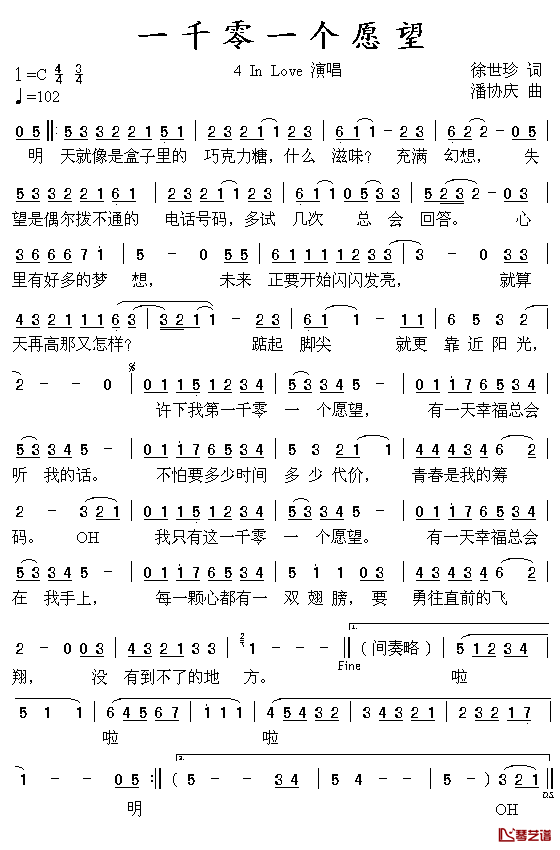 一千零一个愿望
1=C 4/4 3/4
4 In Love 演唱
徐世珍 词
♩=102
潘协庆 曲
0 5 ‖: 5 3 3 2 2 1 5 1 | 2 2 3 2 1 - | 6 1 1 - 2 3 | 6 2 - 0 5 |
明 天就像是盒子里的 巧克力糖，什么 滋味？ 充满 幻想， 失
5 3 3 2 2 1 6 1 | 2 3 2 1 2 3 | 6 1 1 - | 5 4 2 3 | 2 2 - 0 3 |
望是偶尔拨不通的 电话号码，多试 几次 总会 回答。 心
3 6 6 6 7 1 | 5 - 0 5 5 | 6 1 1 1 1 2 3 3 | 3 - 0 3 3 |
里有好多的梦 想， 未来 正要开始闪闪发亮， 就算
4 3 2 1 1 1 6 3 | 3 2 1 1 - | 1 - 1 1 | 6 5 3 2 |
天再高那又怎样？ 踮起 脚尖 就更 靠近阳光，
2 - - 0 | 0 1 1 5 1 2 3 4 | 5 3 3 4 5 - | 0 1 1 7 6 5 3 4 |
许下我第一千零 一个愿望， 有一天幸福总会
5 5 3 3 4 5 - | 0 1 1 7 6 5 3 4 | 5 3 2 1 1 | 4 4 4 3 4 6 |
听 我的话。 不怕要多少时间 多少代价， 青春是我的筹
2 - 0 3 2 1 | 0 1 1 5 1 2 3 4 | 5 3 3 4 5 - | 0 1 1 7 6 5 3 4 |
码。 OH 我只有这一千零 一个愿望。 有一天幸福总会
5 5 3 3 4 5 - | 0 1 1 7 6 5 3 4 | 5 1 1 0 3 | 4 4 4 3 4 6 |
在 我手上， 每一颗心都有一 双翅膀，要 勇往直前的飞
2 - 0 0 3 | 4 3 2 1 3 3 | 1 - - - ‖ （间奏略） | 5 1 2 3 4 |
Fine
翔， 没 有到不了的地 方。 啦
5 1 1 | 6 4 5 6 7 | 1 1 1 | 4 5 4 3 2 | 3 4 3 2 1 | 2 3 2 1 7 |
啦 啦
1 - - 0 5 :‖ ( 5 - - 3 4 | 5 - - 3 4 | 5 - - - ) 3 2 1 ‖
D.S.
明 OH
琴艺谱